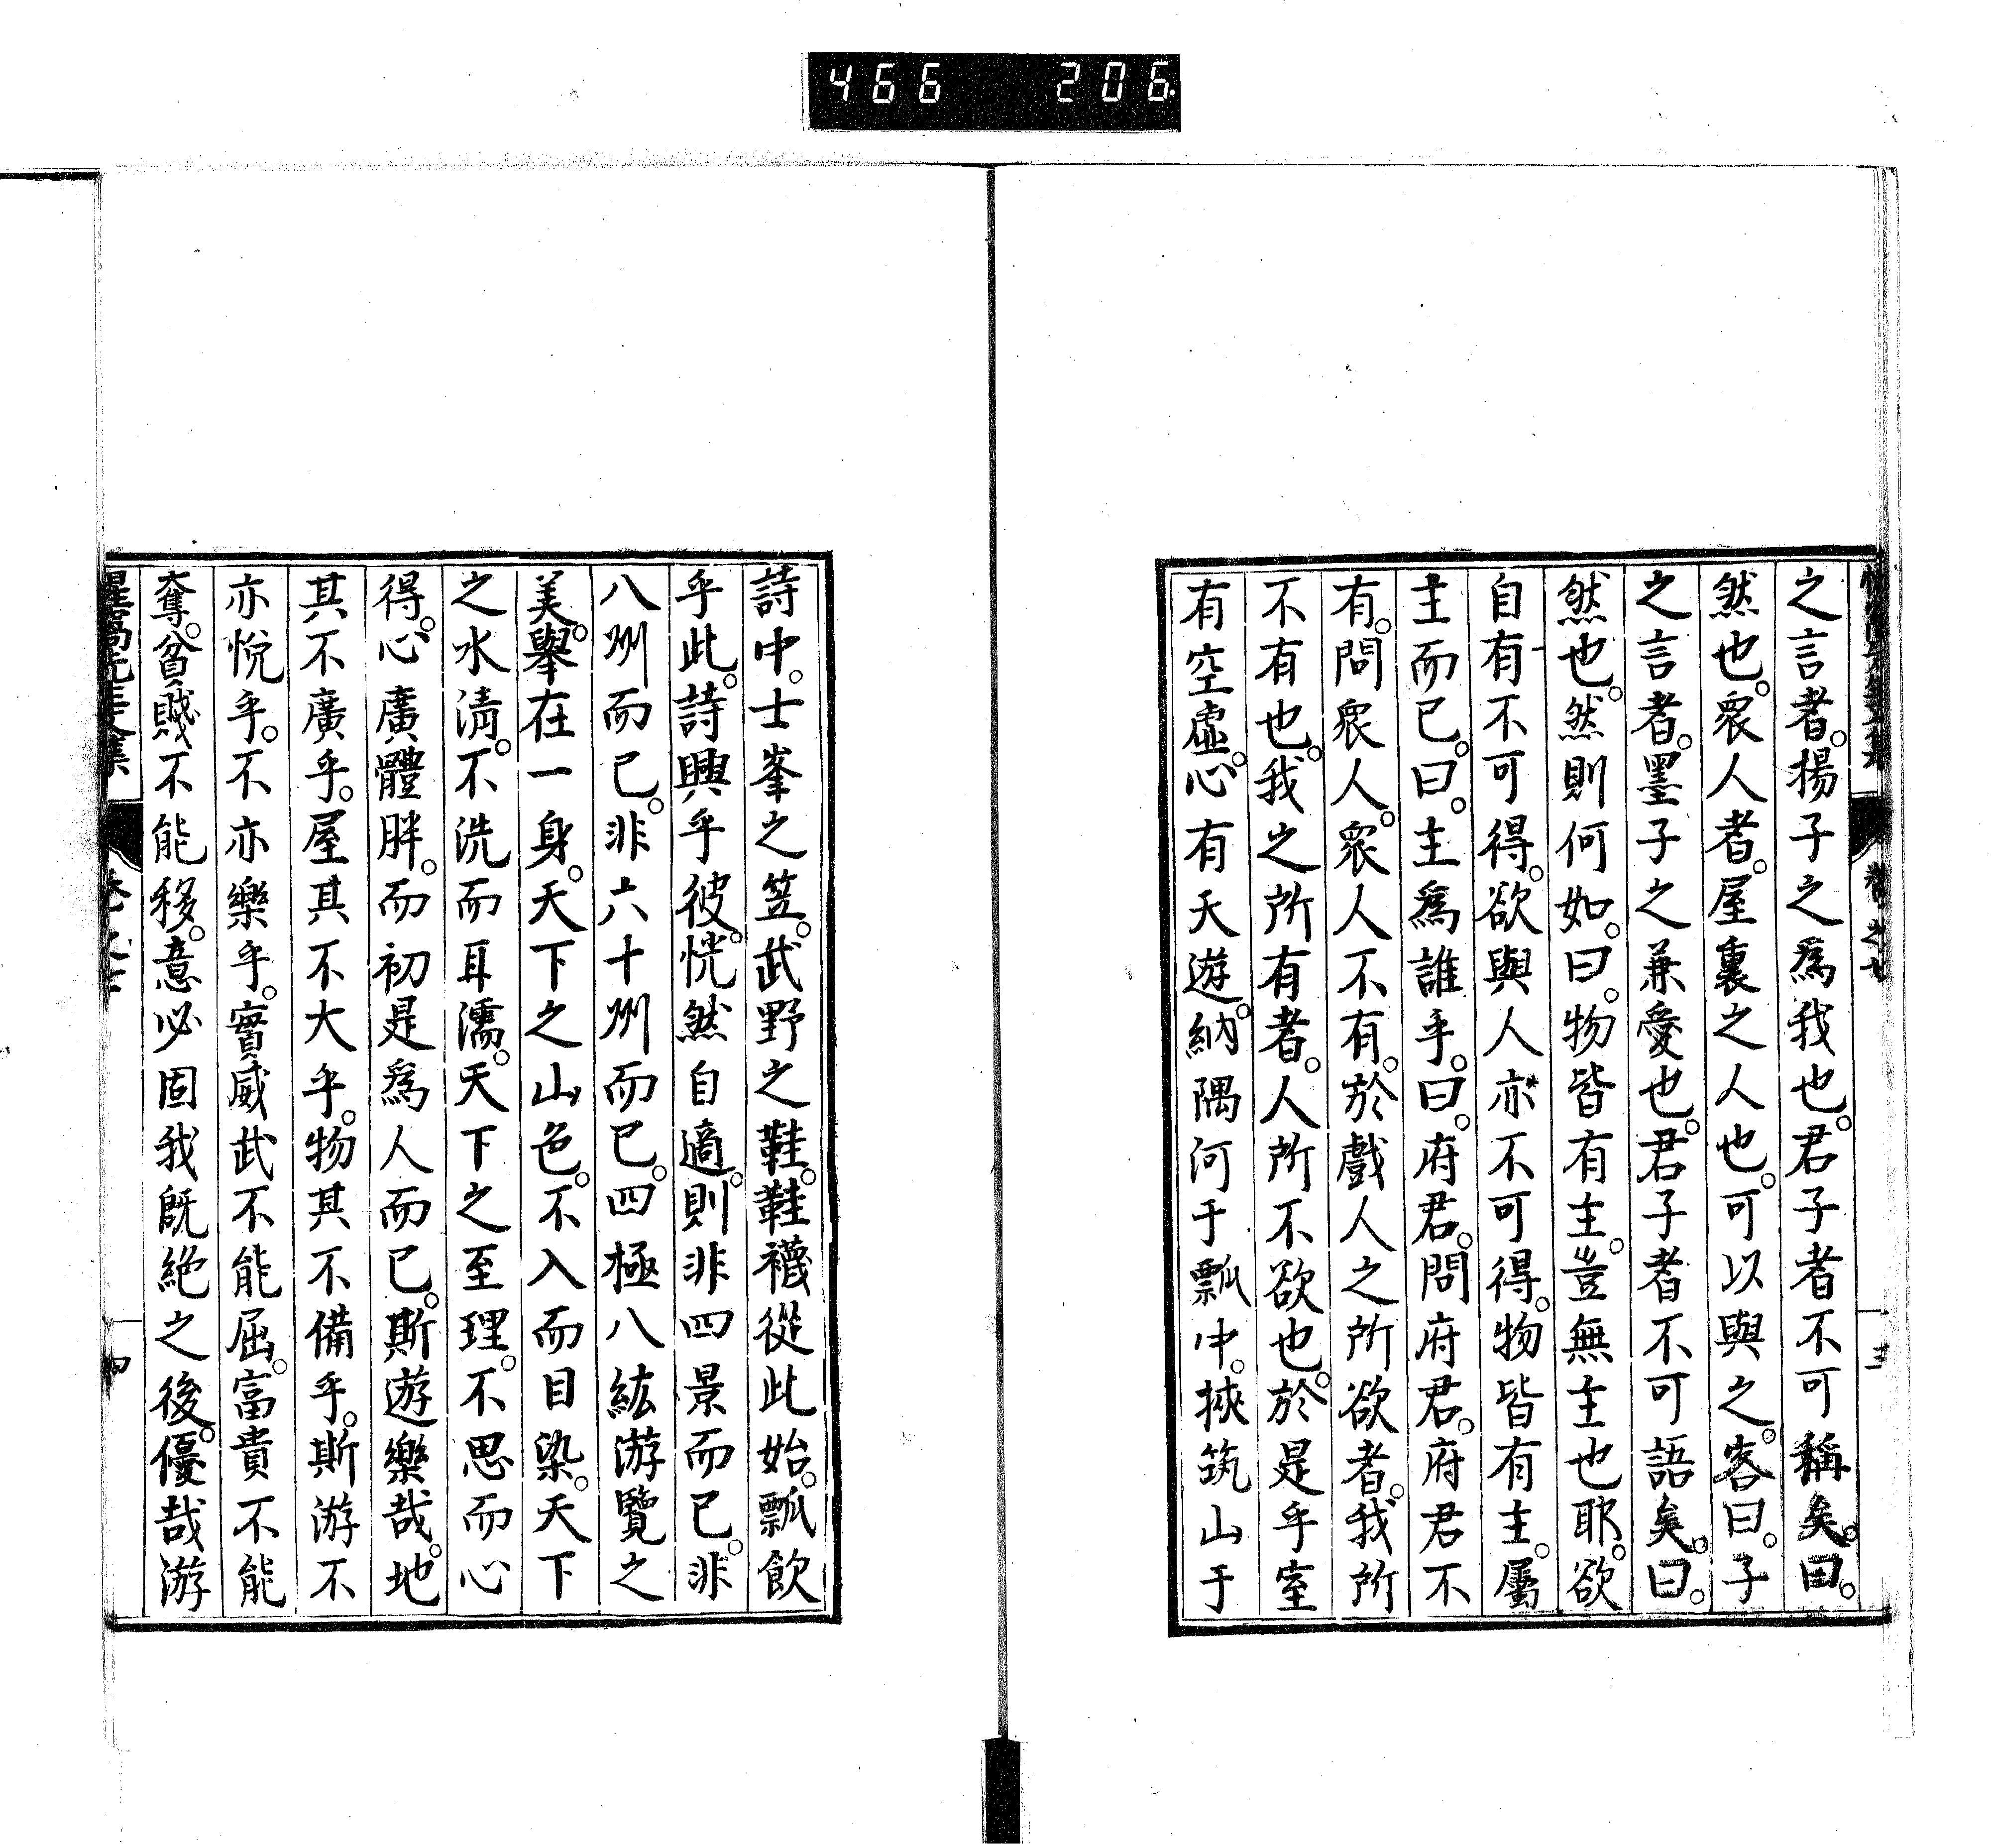 466 206
之言者。揚子之爲我也。君子者不可稱矣。曰。
然也。衆人者。屋裏之人也。可以與之。客曰。子
之言者。墨子之兼愛也。君子者不可語矣。曰。
然也。然則何如。曰。物皆有主。豈無主也耶。欲
自有不可得。欲與人亦不可得。物皆有主。屬
主而已。曰。主爲誰乎。曰。府君。問府君。府君不
有。問衆人。衆人不有。於戲人之所欲者。我所
不有也。我之所有者。人所不欲也。於是乎室
有空虛。心有天遊。納隅河于瓢中。挾筑山于
詩中。士峯之笠。武野之鞋。鞋襪從此始。瓢飲
乎此。詩興乎彼。恍然自適。則非四景而已。非
八州而已。非六十州而已。四極八紘游覽之
美。擧在一身。天下之山色。不入而目染。天下
之水淸。不洗而耳濡。天下之至理。不思而心
得。心廣體胖。而初是爲人而已。斯遊樂哉。地
其不廣乎。屋其不大乎。物其不備乎。斯游不
亦悅乎。不亦樂乎。實威武不能屈。富貴不能
奪。貧賤不能移。意必固我既絶之後。優哉游